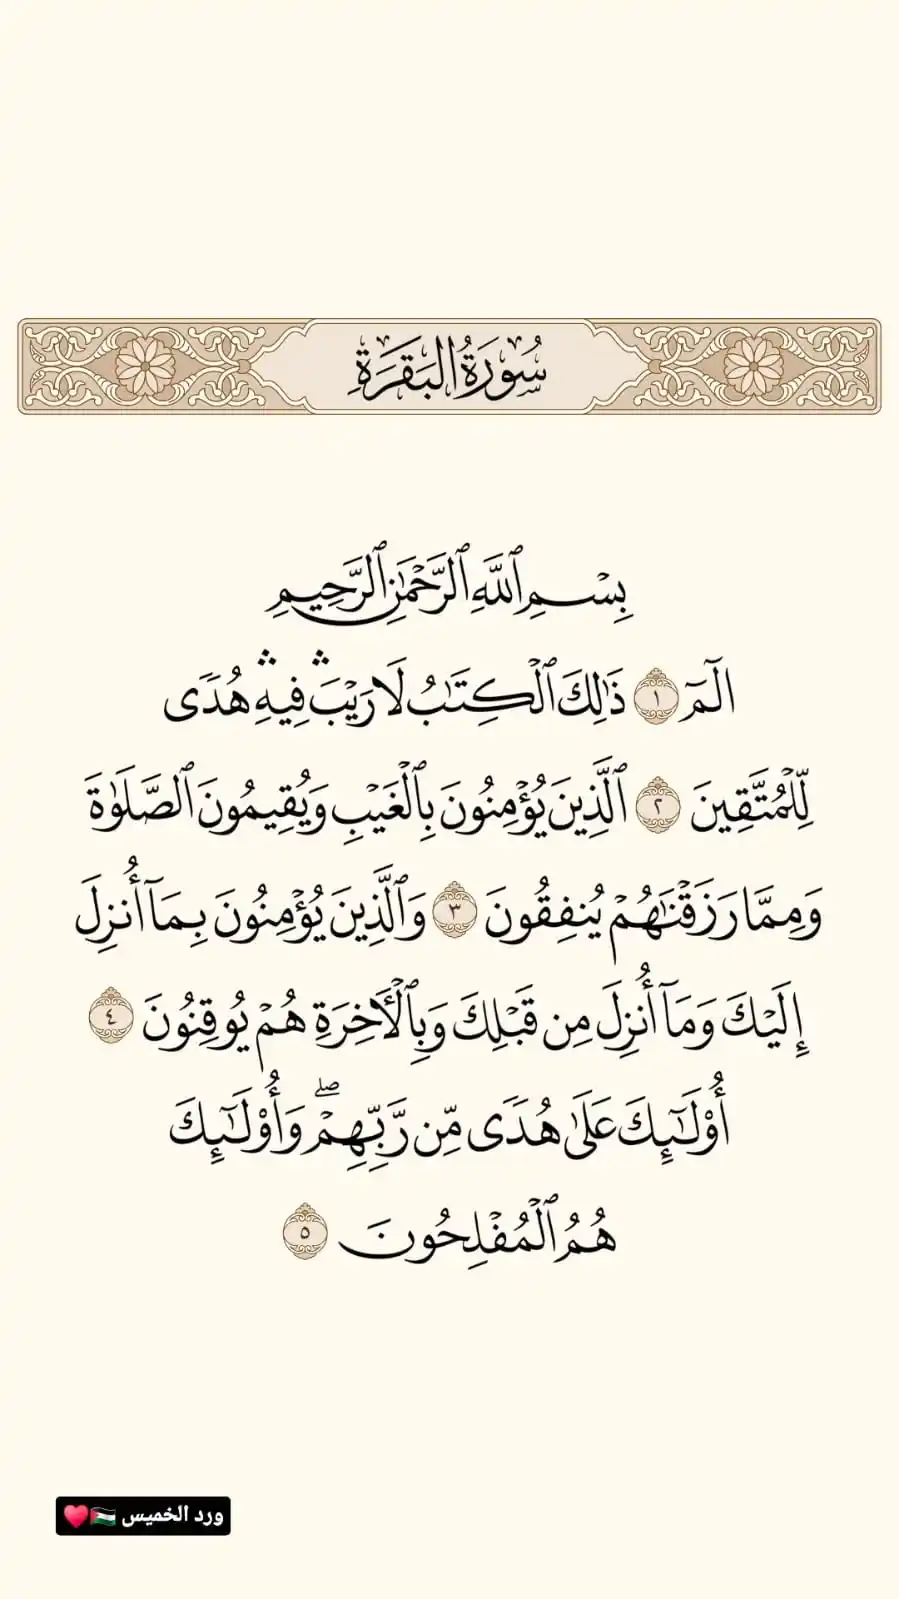 سُورَةُ البَقَرَةِ
بِسۡمِ ٱللَّهِ ٱلرَّحۡمَٰنِ ٱلرَّحِيمِ
الٓمٓ ١ ذَٰلِكَ ٱلۡكِتَٰبُ لَا رَيۡبَۛ فِيهِۛ هُدٗى
لِّلۡمُتَّقِينَ ٢ ٱلَّذِينَ يُؤۡمِنُونَ بِٱلۡغَيۡبِ وَيُقِيمُونَ ٱلصَّلَوٰةَ
وَمِمَّا رَزَقۡنَٰهُمۡ يُنفِقُونَ ٣ وَٱلَّذِينَ يُؤۡمِنُونَ بِمَآ أُنزِلَ
إِلَيۡكَ وَمَآ أُنزِلَ مِن قَبۡلِكَ وَبِٱلۡأٓخِرَةِ هُمۡ يُوقِنُونَ ٤
أُوْلَٰٓئِكَ عَلَىٰ هُدٗى مِّن رَّبِّهِمۡۖ وَأُوْلَٰٓئِكَ
هُمُ ٱلۡمُفۡلِحُونَ ٥
ورد الخميس 🇵🇸♥️